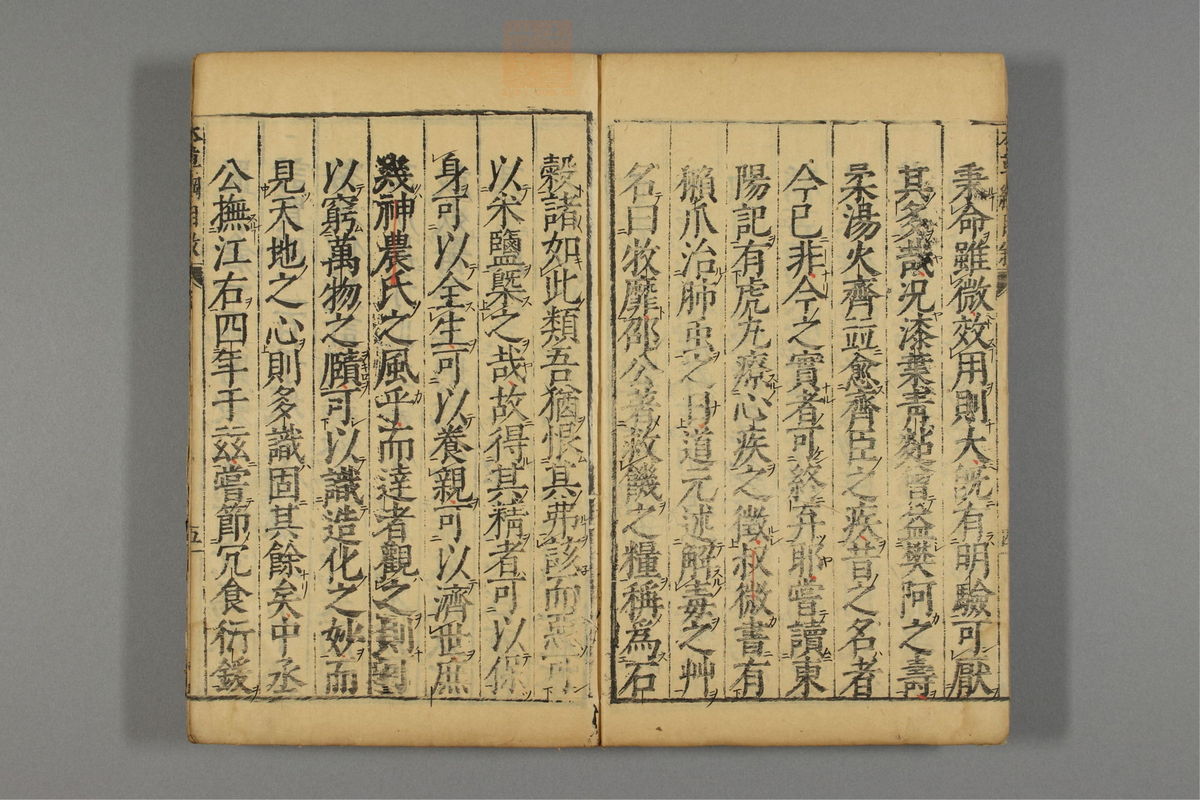 秉命雖微效用則大既有明驗可厭
其多哉况漆葉青黏嘗益樊阿之壽
柔湯火齊並愈齊臣之疾昔之名者
今已非今之實者可終弃耶嘗讀東
陽記有虎丸療心疾之徵叔微書有
獺爪治肺之道元述解毒之艸
名曰牧靡邵公著救饑之糧稱為石
糓諸如此類吾猶恨其弗該而惡可
以米鹽槩之哉故得其精者可以保
身可以全生可以養親可以濟世庶
幾神農氏之風乎而達者觀之則
以窮萬物之賾可以識造化之妙而
見天地之心則多識固其餘矣中丞
公撫江右四年于兹嘗節冗食衍鍰